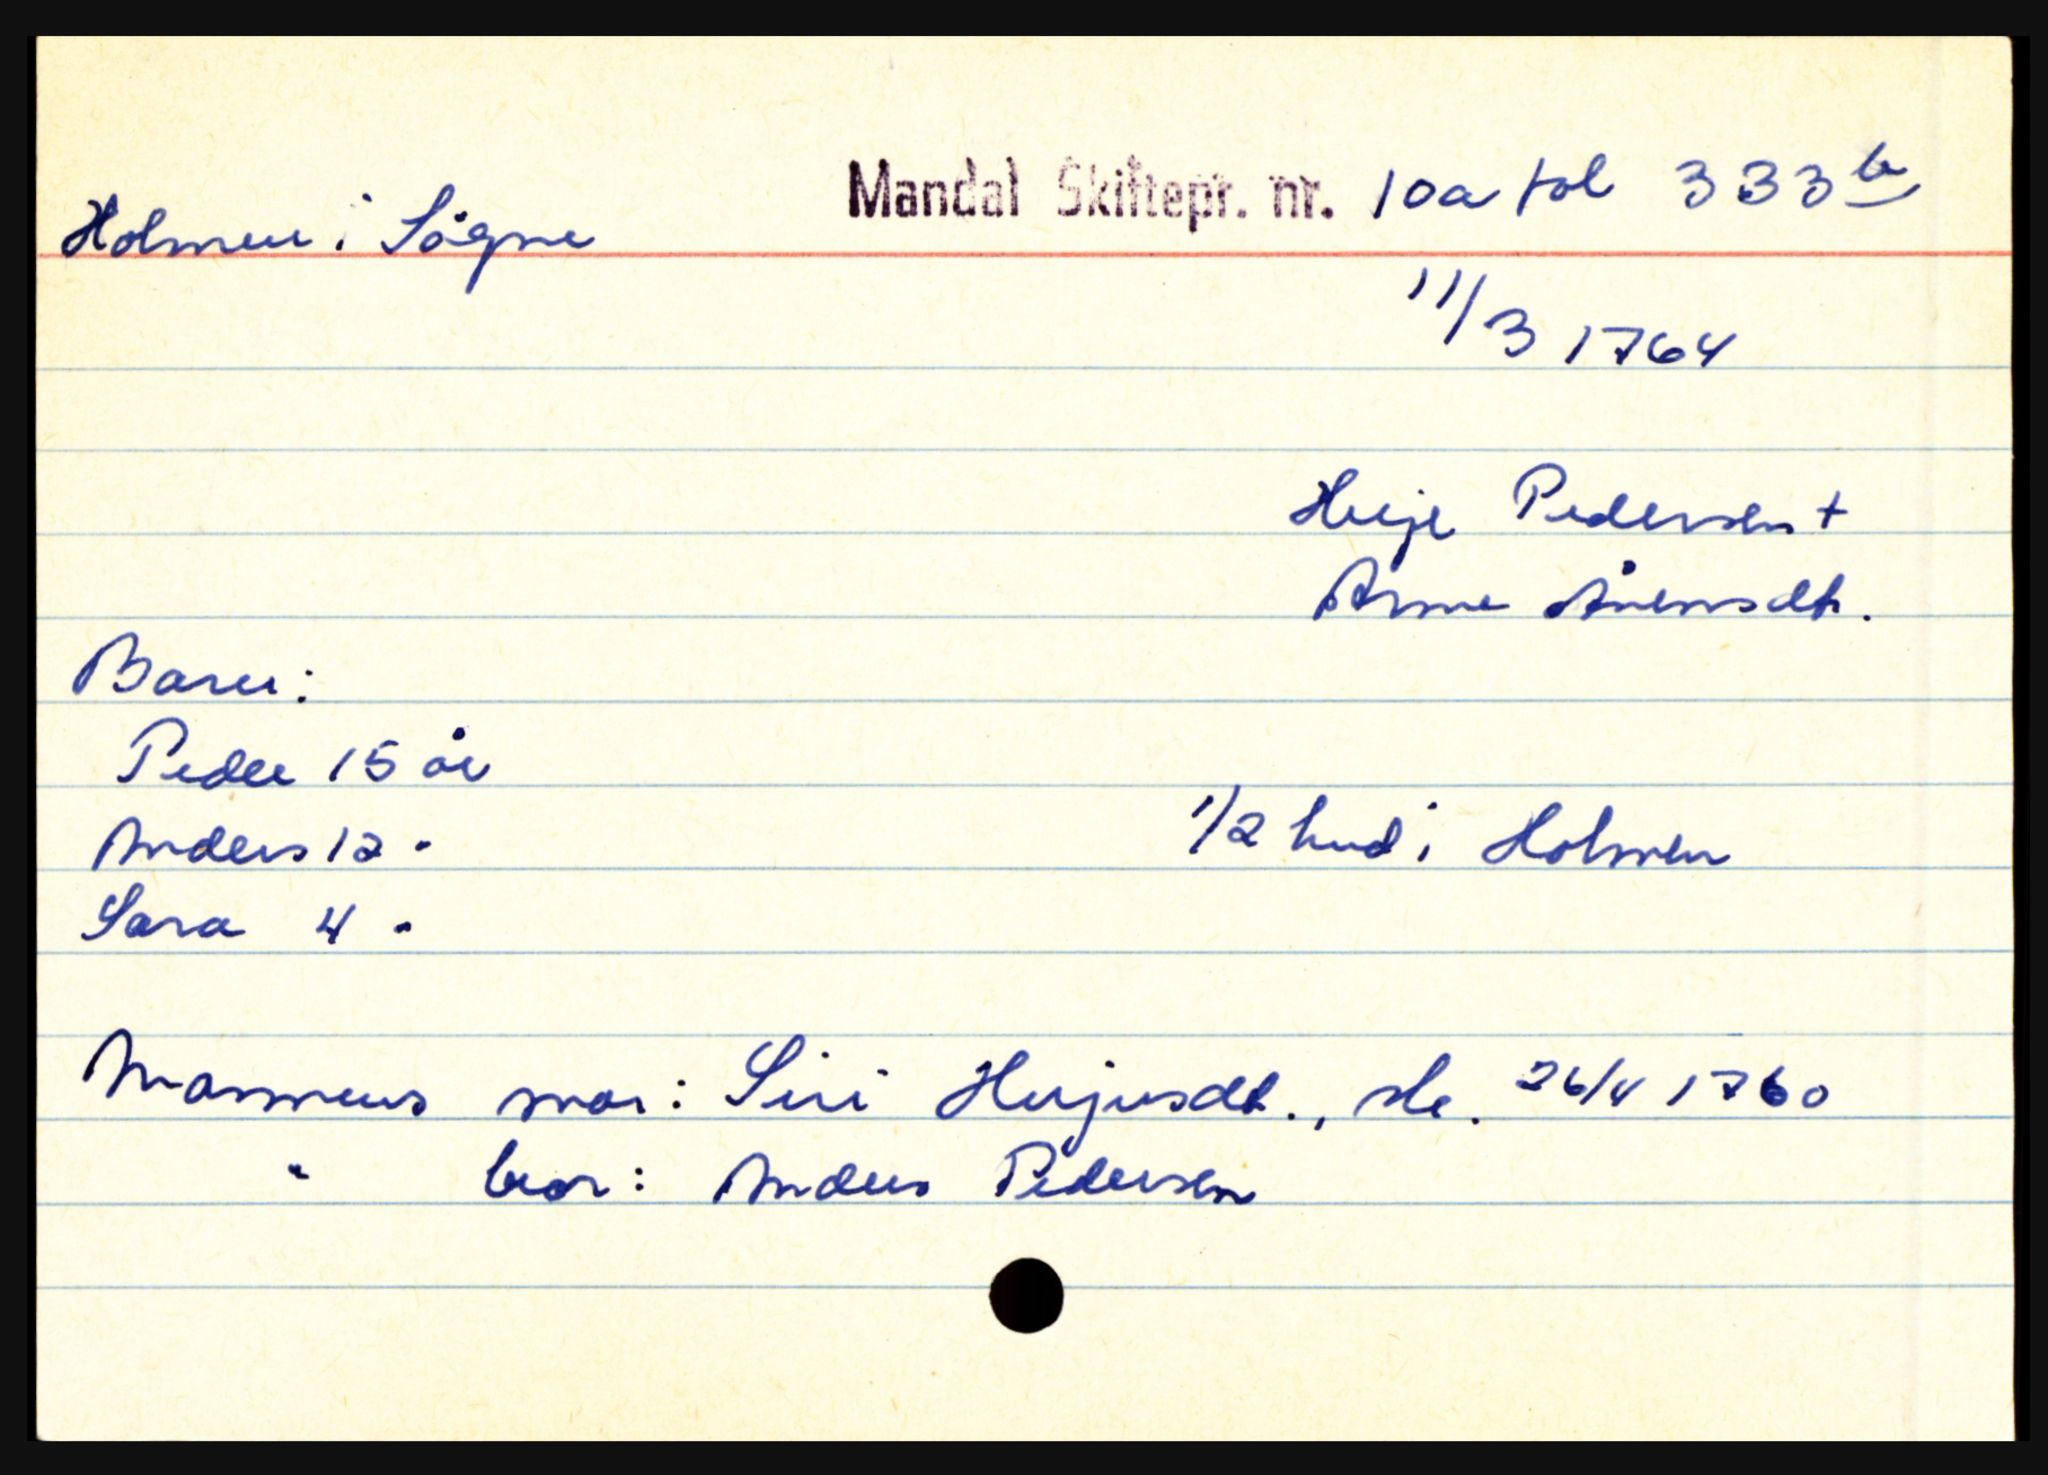 Mandal Skiftepr. nr. 10a fol 333b
Holmen i Søgne
11/3 1764
Herje Pedersen +
Anne Ånensdt.
Barn:
Peder 15 år
Anders 12 "
1/2 hud i Holmen
Sara 4 "
Mannens mor: Siri Herjusdt., sk. 26/4 1760
" bror: Anders Pedersen